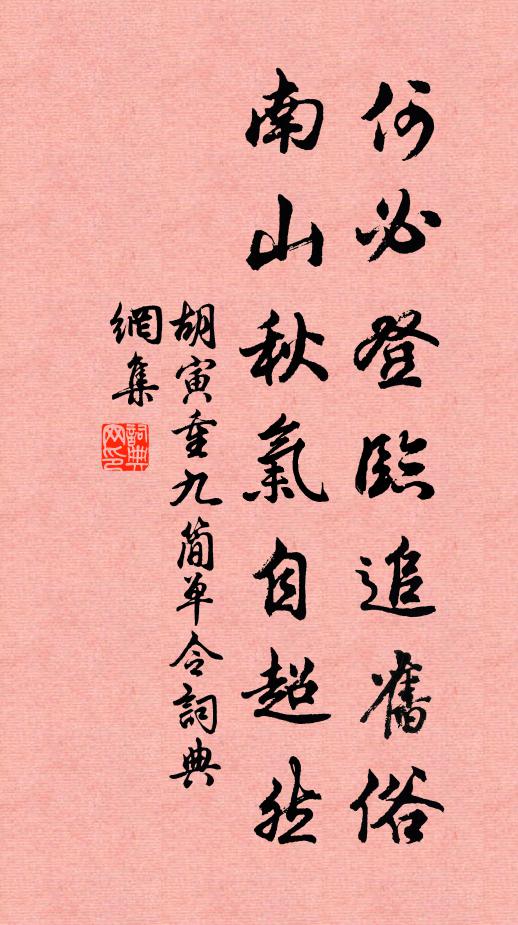 何必登臨追舊俗
南山秋氣自超然
胡寅重九簡單令詞典
網集
詞典
網印